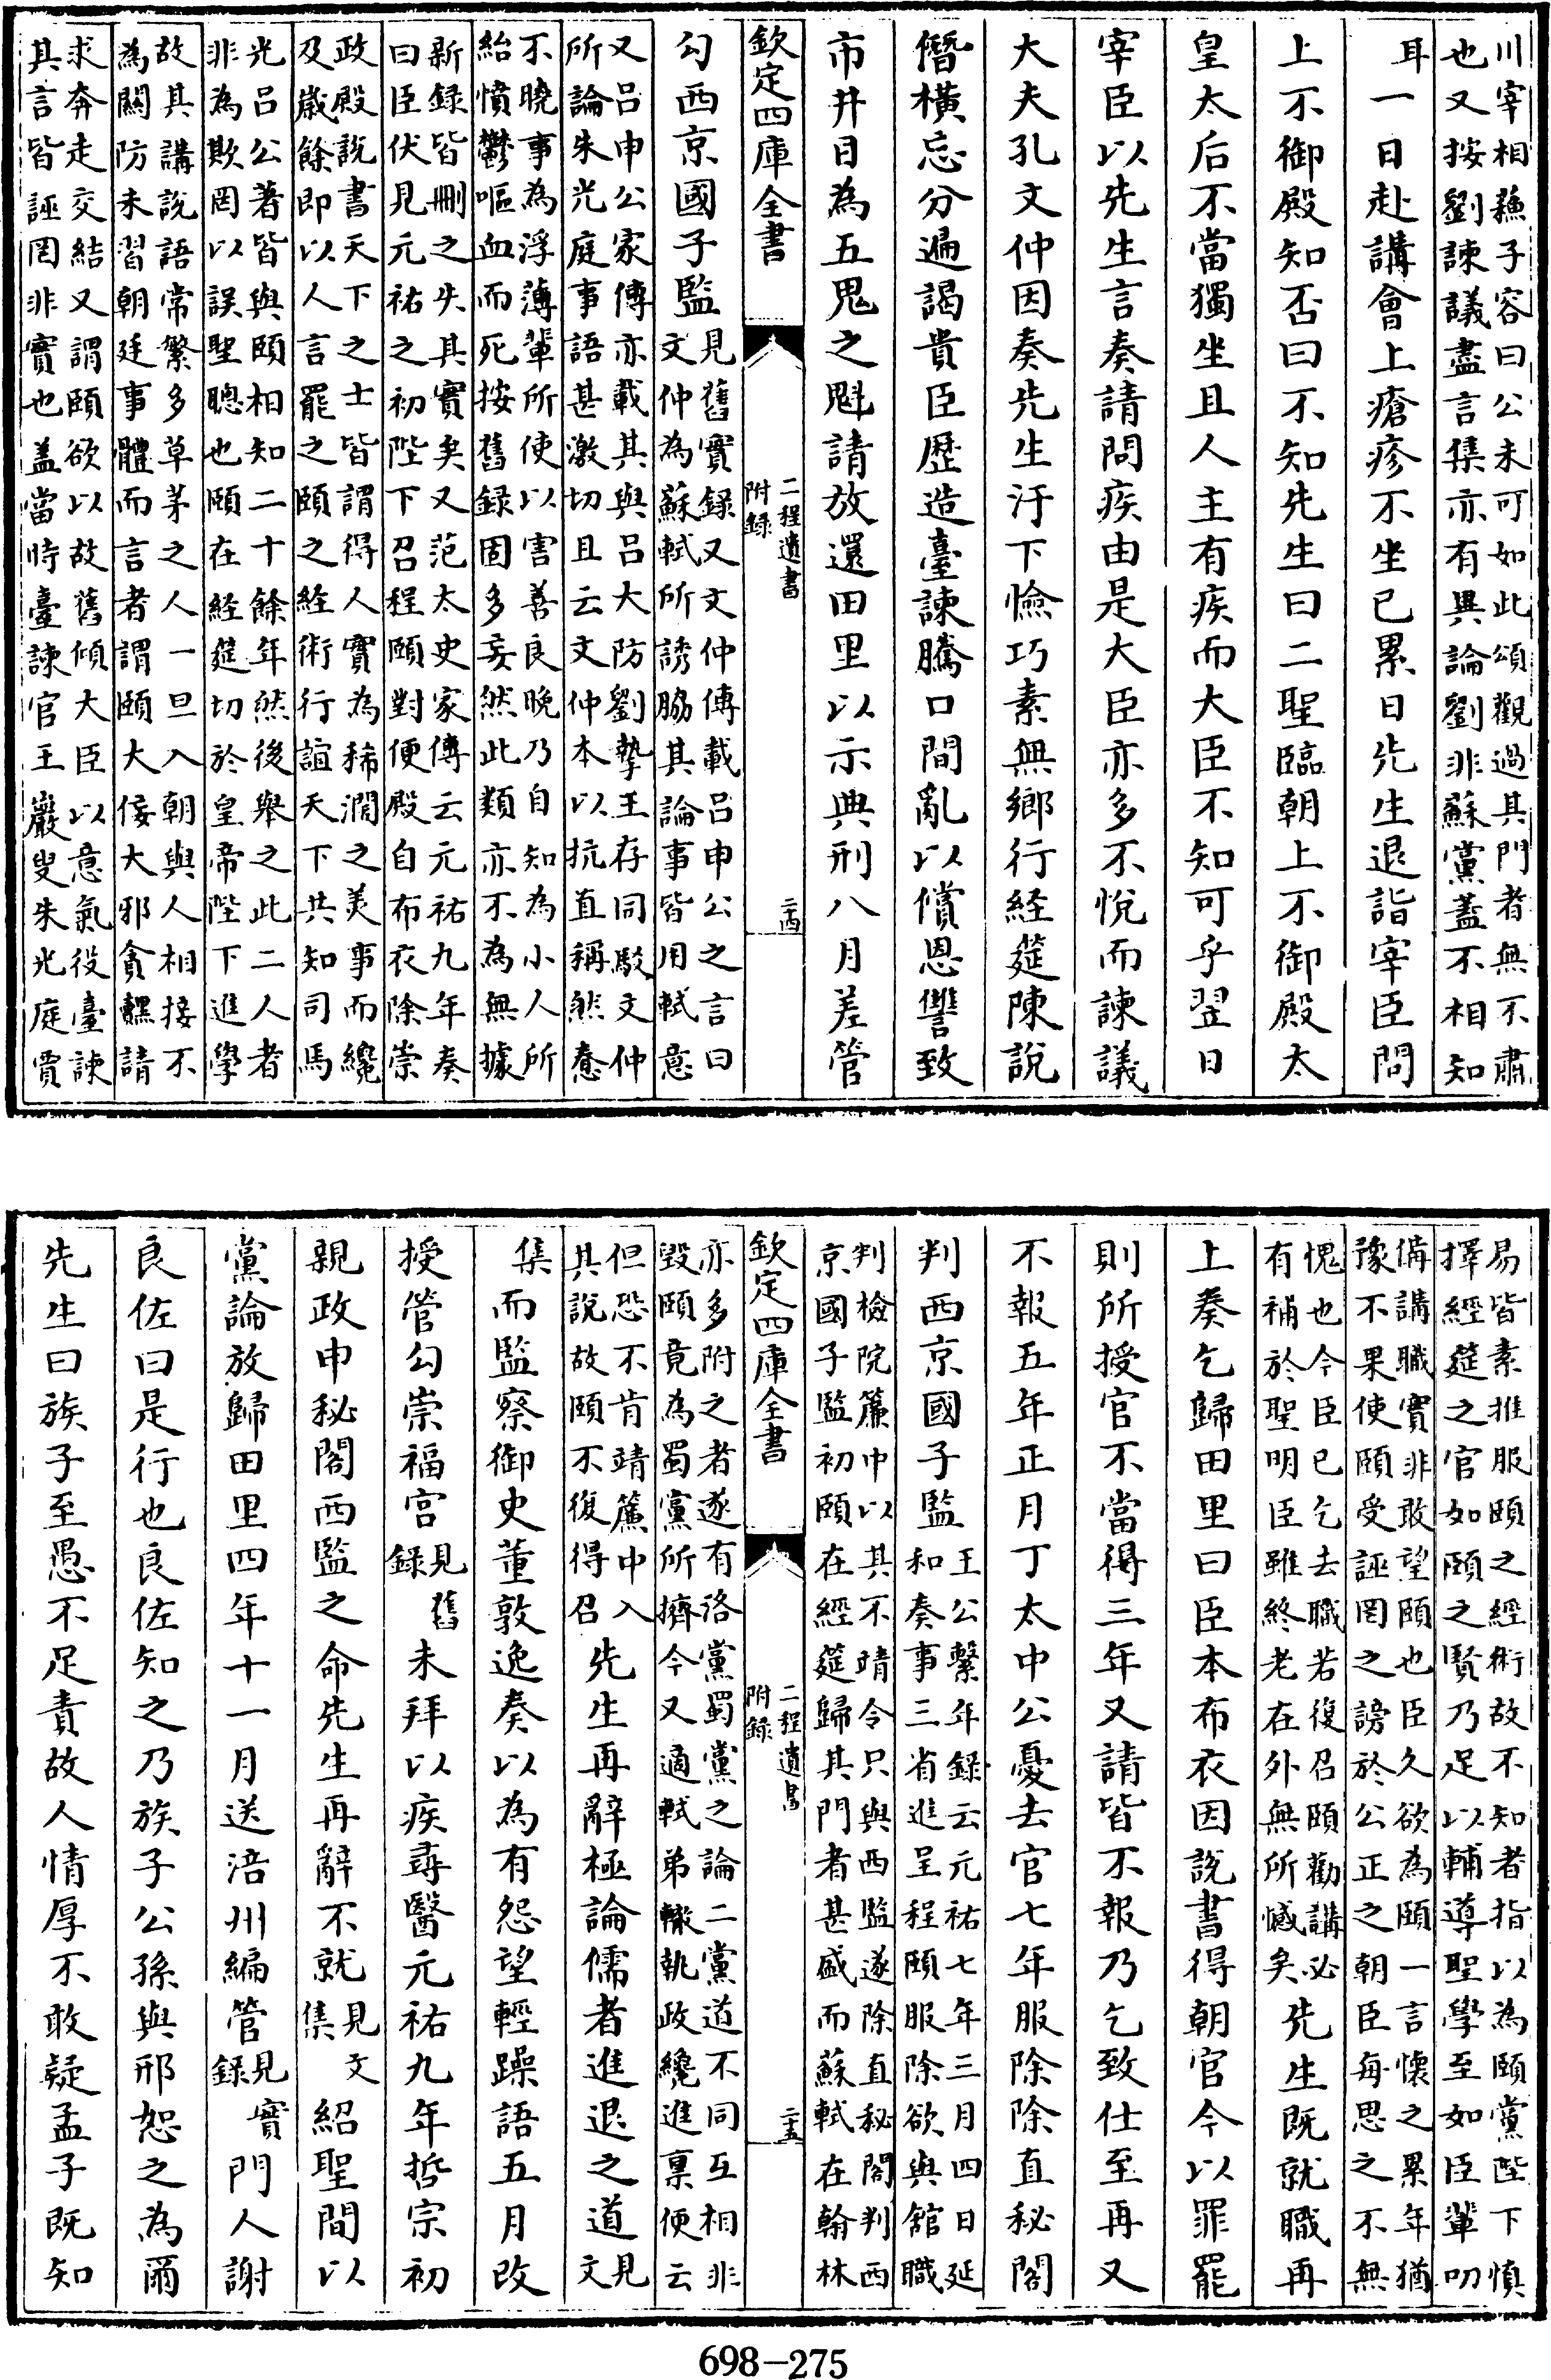 川宰相蘇子容曰公未可如此頌觀過其門者無不肅
也又按劉諫議盡言集亦有異論劉非蘇黨蓋不相知
耳一日赴講會上瘡疹不坐已累日先生退詣宰臣問
上不御殿知否曰不知先生曰二聖臨朝上不御殿太
皇太后不當獨坐且人主有疾而大臣不知可乎翌日
宰臣以先生言奏請問疾由是大臣亦多不悅而諫議
大夫孔文仲因奏先生汙下憸巧素無鄉行經筵陳說
僭橫忘分遍謁貴臣歴造臺諫騰口間亂以償恩讐致
市井目為五鬼之魁請放還田里以示典刑八月差管
欽定四庫全書
二程遺書
附録
二十四
勾西京國子監
見舊實録又文仲傳載吕申公之言曰
文仲為蘇軾所誘脇其論事皆用軾意
又吕申公家傳亦載其與吕大防劉摯王存同駮文仲
所論朱光庭事語甚激切且云文仲本以抗直稱然惷
不曉事為浮薄輩所使以害善良晚乃自知為小人所
紿憤鬱嘔血而死按舊録固多妄然此類亦不為無據
新録皆刪之失其實矣又范太史家傳云元祐九年奏
曰臣伏見元祐之初陛下召程頤對便殿自布衣除崇
政殿說書天下之士皆謂得人實為稀濶之美事而纔
及歳餘即以人言罷之頤之經術行誼天下共知司馬
光吕公著皆與頤相知二十餘年然後舉之此二人者
非為欺罔以誤聖聰也頤在經筵切於皇帝陛下進學
故其講說語常繁多草茅之人一旦入朝與人相接不
為關防未習朝廷事體而言者謂頤大佞大邪貪黷請
求奔走交結又謂頤欲以故舊傾大臣以意氣役臺諫
其言皆誣罔非實也盖當時臺諫官王巖叟朱光庭賈
易皆素推服頤之經術故不知者指以為頤黨陛下慎
擇經筵之官如頤之賢乃足以輔導聖學至如臣輩叨
備講職實非敢望頤也臣久欲為頤一言懷之累年猶
豫不果使頤受誣罔之謗於公正之朝臣每思之不無
愧也今臣已乞去職若復召頤勸講必
有補於聖明臣雖終老在外無所憾矣
先生既就職再
上奏乞歸田里曰臣本布衣因說書得朝官今以罪罷
則所授官不當得三年又請皆不報乃乞致仕至再又
不報五年正月丁太中公憂去官七年服除除直秘閣
判西京國子監
王公繫年録云元祐七年三月四日延
和奏事三省進呈程頤服除欲與館職
判檢院簾中以其不靖令只與西監遂除直秘閣判西
京國子監初頤在經筵歸其門者甚盛而蘇軾在翰林
欽定四庫全書
二程遺書
附録
二十五
亦多附之者遂有洛黨蜀黨之論二黨道不同互相非
毀頤竟為蜀黨所擠今又適軾弟轍執政纔進禀便云
但恐不肯靖簾中入
其說故頤不復得召
先生再辭極論儒者進退之道
見文
集
而監察御史董敦逸奏以為有怨望輕躁語五月改
授管勾崇福宮
見舊
録
未拜以疾尋醫元祐九年哲宗初
親政申秘閣西監之命先生再辭不就
見文
集
紹聖間以
黨論放歸田里四年十一月送涪州編管
見實
録
門人謝
良佐曰是行也良佐知之乃族子公孫與邢恕之為爾
先生曰族子至愚不足責故人情厚不敢疑孟子既知
698-275